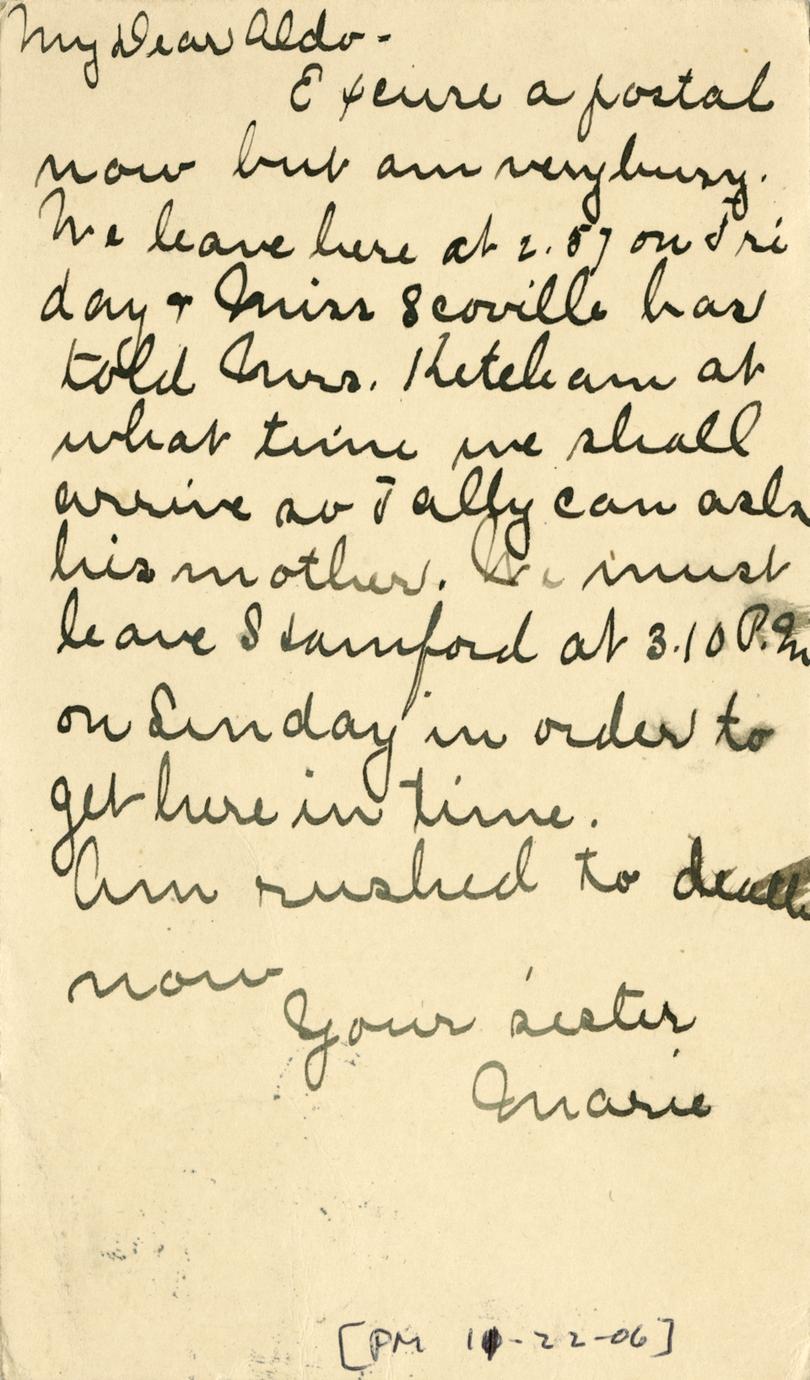 My Dear Aldo -
Excuse a postal
now but am very busy.
We leave here at 2.57 on Fri
day + Miss Scoville has
told Mrs. Ketcham at
what time we shall
arrive so Tally can ask
his mother. We must
leave Stamford at 3.10 P.M
on Sunday in order to
get here in time.
Am rushed to death
now
Your sister
Marie
[PM 10-22-06]